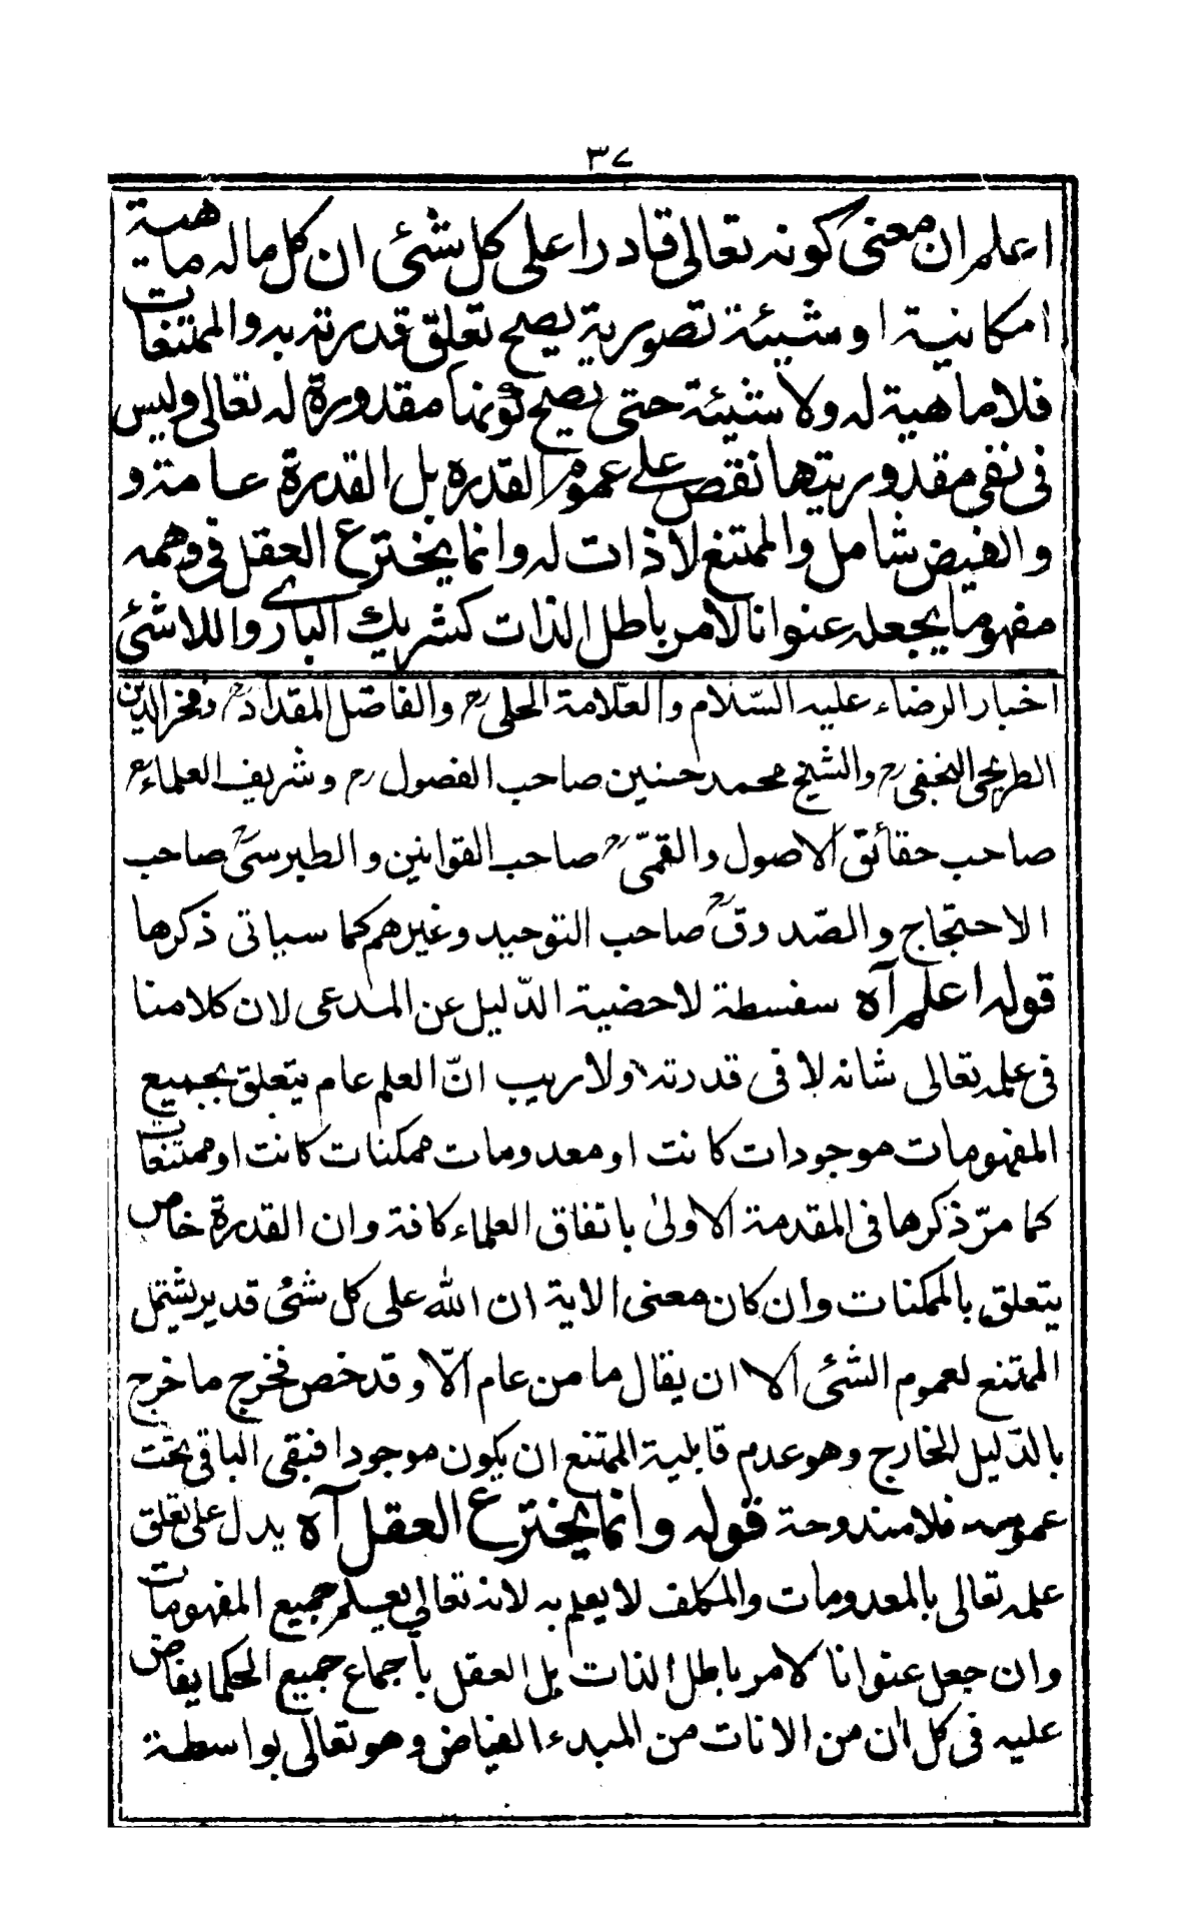 ٣٧
اعلم ان معنى كونه تعالى قادرا على كل شئ ان كل ماله ماهية
امكانية او شيئة تصورية يصح تعلق قدرته به والممتنعات
فلا ماهية له ولا شيئة حتى يصح كونها مقدورة له تعالى وليس
فى نفى مقدوريتها نقص على عموم القدره بل القدرة عامة و
والفيض شامل والممتنع لاذات له وانما يخترع العقل فى وهمه
مفهوما يجعله عنوانا لامر باطل الذات كشريك البارى واللاشئ
اخبار الرضاء عليه السّلام والعلّامة الحلى رح والفاضل المقداد رح وفخر الدين
الطريحى النجفى رح والشيخ محمد حسنين صاحب الفصول رح وشريف العلماء رح
صاحب حقائق الاصول والقمّى رح صاحب القوانين والطبرسى رح صاحب
الاحتجاج والصّدوق رح صاحب التوحيد وغيرهم كما سياتى ذكرها
قوله اعلم آه سفسطة لاحضية الدّليل عن المدعى لان كلامنا
فى علمه تعالى شانه لا فى قدرته ولا ريب انّ العلم عام يتعلق بجميع
المفهومات موجودات كانت او معدومات ممكنات كانت او ممتنعات
كما مرّ ذكرها فى المقدمة الاولىٰ باتفاق العلماء كافة وان القدرة خاص
يتعلق بالممكنات وان كان معنى الاية ان الله على كل شئ قدير يشتمل
الممتنع لعموم الشئ الا ان يقال ما من عام الّا وقد خص فخرج ما خرج
بالدّليل الخارج وهو عدم قابلية الممتنع ان يكون موجودا فبقى الباقى تحت
عمومه فلا مندوحة قوله وانما يخترع العقل آه يدل على تعلق
علمه تعالى بالمعدومات والمكلف لا يعلم به لانه تعالى يعلم جميع المفهومات
وان جعل عنوانا لامر باطل الذات بل العقل بأجماع جميع الحكما يفاض
عليه فى كل اٰن من الانات من المبدء الفياض وهو تعالى بواسطة